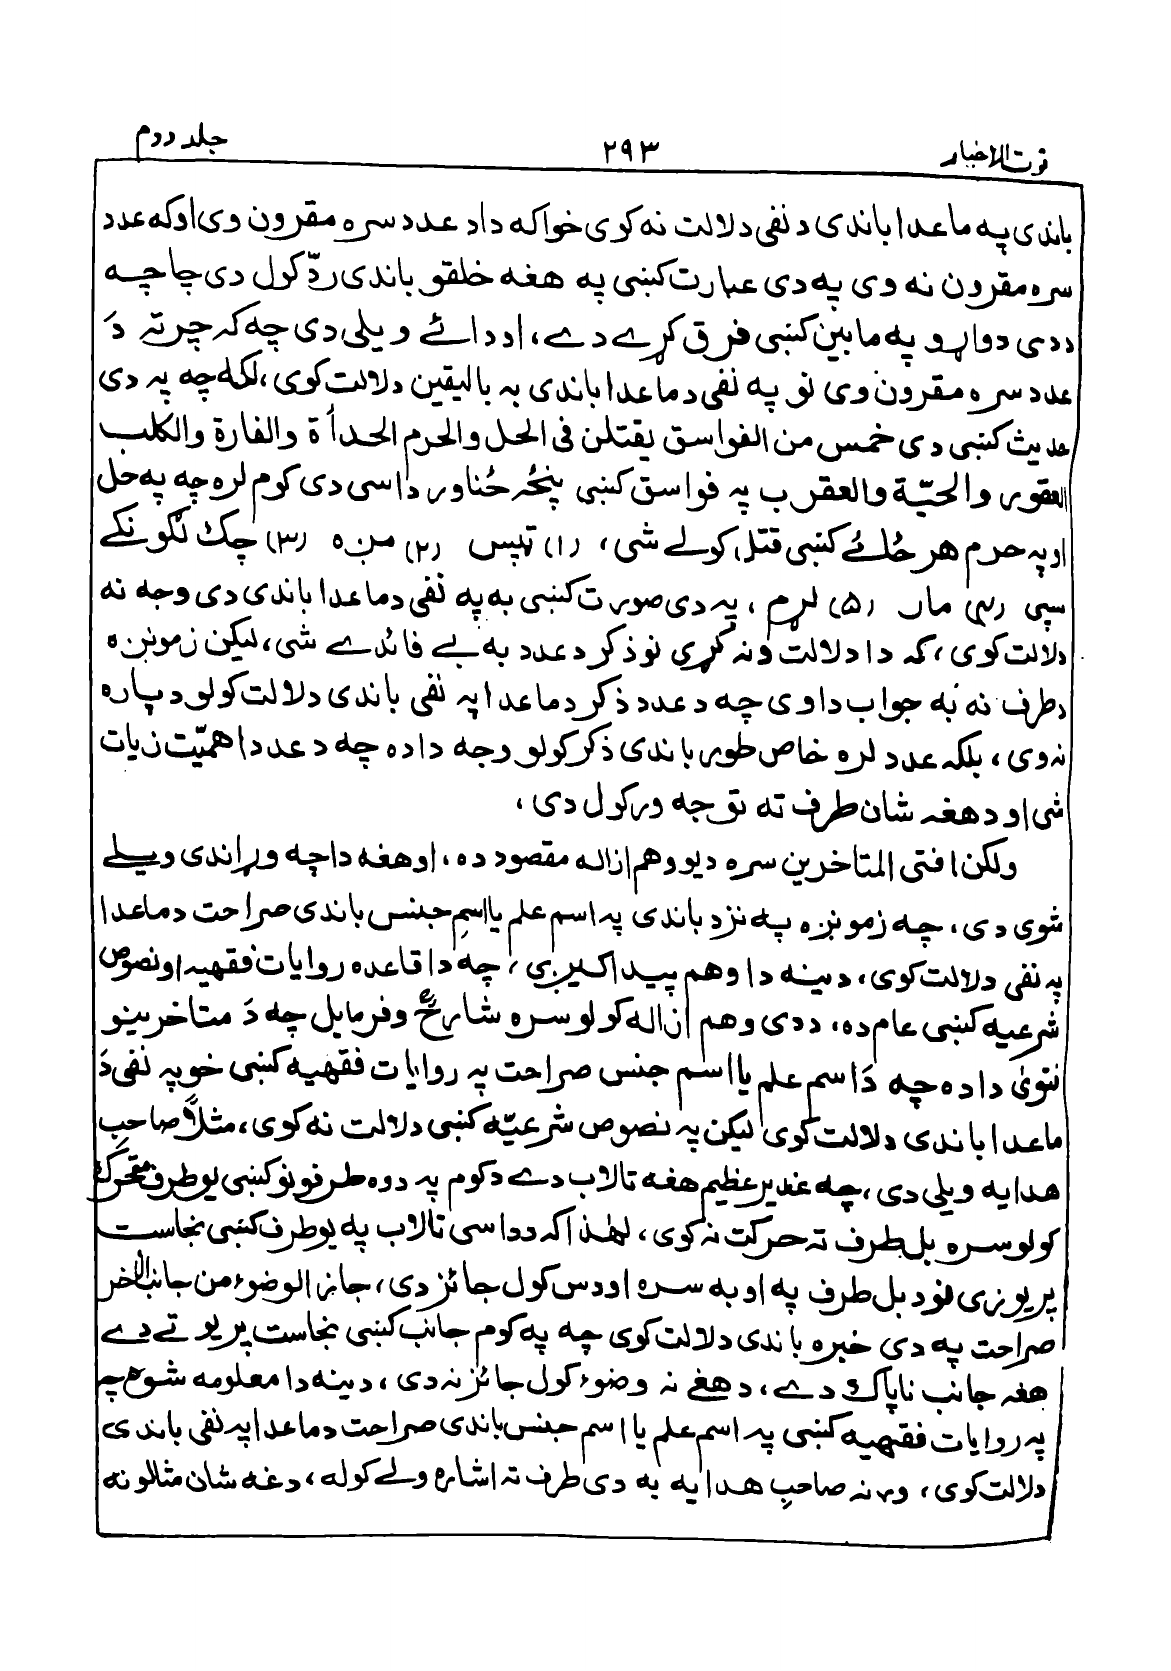 قوت الاخبار ۲۹۳ جلد دوم
باندی په ماعدا باندی د نفی دلالت نه کوی خواکه دا د عدد سره مقرون وی اوکه عدد
سره مقرون نه وی په دی عبارت کښی په هغه خلقو باندی ردّ کول دی چاچه
ددی دواړو په مابین کښی فرق کړے دے، او دائے ویلی دی چه که چرته دَ
عدد سره مقرون وی نو په نفی د ماعدا باندی به بالیقین دلالت کوی، لکه چه په دی
حدیث کښی دی خمس من الفواسق یقتلن فی الحل والحرم الحدأة والفارة والکلب
العقور والحیّة والعقرب په فواسق کښی پنځه ځناور داسی دی کوم لره چه په حل
او په حرم هر ځائے کښی قتل کولے شی، (۱) ټپس (۲) منږه (۳) چک لګونکے
سپی (۴) مار (۵) لړم، په دی صورت کښی به په نفی د ماعدا باندی دی وجه نه
دلالت کوی، که دا دلالت ونه کړی نو ذکر د عدد به بے فائدے شی، لیکن زمونږه
د طرف نه به جواب داوی چه د عدد ذکر د ماعدا په نفی باندی دلالت کولو دپاره
نه وی، بلکه عدد لره خاص طور باندی ذکر کولو وجه داده چه د عدد اهمیّت زیات
شی او د هغه شان طرف ته توجه ورکول دی،
ولکن افتی المتاخرین سره دیو وهم ازاله مقصود ده، او هغه داچه وړاندی ویلے
شوی دی، چه زمونږه په نزد باندی په اسم علم یا اسمِ جنس باندی صراحت د ماعدا
په نفی دلالت کوی، دینه دا وهم پیدا کیږی، چه دا قاعده روایات فقهیه او نصوص
شرعیه کښی عام ده، ددی وهم ازاله کولو سره شارحؒ وفرمایل چه دَ متاخرینو
فتویٰ داده چه دَ اسم علم یا اسم جنس صراحت په روایات فقهیه کښی خو په نفی دَ
ماعدا باندی دلالت کوی لیکن په نصوص شرعیّه کښی دلالت نه کوی، مثلاً صاحبِ
هدایه ویلی دی، چه غدیر عظیم هغه تالاب دے د کوم په دوه طرفونو کښی یو طرف متحرک
کولو سره بل طرف ته حرکت نه کوی، لهٰذا که د داسی تالاب په یو طرف کښی نجاست
پریوزی نو د بل طرف په اوبه سره اودس کول جائز دی، جاز الوضوء من جانب الاٰخر
صراحت په دی خبره باندی دلالت کوی چه په کوم جانب کښی نجاست پریوتے دے
هغه جانب ناپاک دے، د هغے نه وضوء کول جائز نه دی، دینه دا معلومه شوه چه
په روایات فقهیه کښی په اسم علم یا اسم جنس باندی صراحت د ماعدا په نفی باندی
دلالت کوی، ورنه صاحبِ هدایه به دی طرف ته اشاره ولے کوله، دغه شان مثالونه